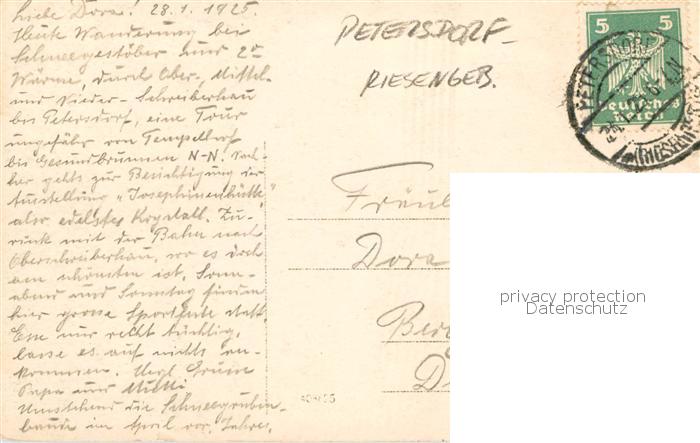 Liebe Dora! 28.1.1925.
Heute Wanderung bei
Schneegestöber und 2°
Wärme, durch Ober-, Mittel-
und Nieder-Schreiberhau
bis Petersdorf, eine Tour
ungefähr von Tempelhof
bis Gesundbrunnen N-N. Nach-
her gehts zur Besichtigung der
Ausstellung "Josephinenhütte,"
also edelstes Krystall. Zu-
rück mit der Bahn nach
Oberschreiberhau, wo es doch
am schönsten ist. Sonn-
abend und Sonntag finden
hier grosse Sportfeste statt.
Esse nur recht tüchtig,
lasse es auf nichts an-
kommen. Herzl Grüsse
Papa und Mutti
Umstehend die Schneegruben-
baude im April vor. Jahres.
PETERSDORF-
RIESENGEB.
5 5
Deutsches
Reich
PETERSDORF
(RIESENGEB.)
Fräul
Dora
Ber
privacy protection
Datenschutz